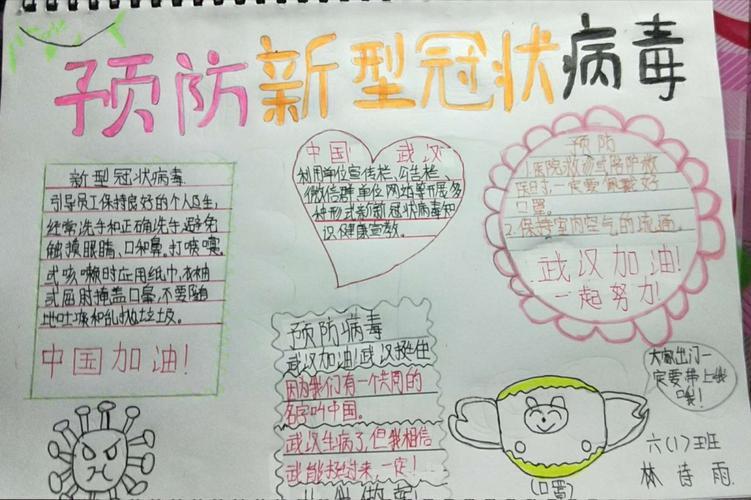 预防新型冠状病毒
新型冠状病毒
引导员工保持良好的个人卫生,
经常洗手和正确洗手,避免
触摸眼睛、口和鼻。打喷嚏
或咳嗽时应用纸巾,衣袖
或屈肘掩盖口鼻,不要随
地吐痰和乱扔垃圾。
中国加油!
中国 武汉
利用单位宣传栏,公告栏、
微信群、单位网站等开展多
种形式新冠状病毒知
识健康宣教。
预防
1.医院
时,一定要佩戴好
口罩。
2.保持室内空气的流通。
武汉加油!
一起努力!
预防病毒
武汉加油!武汉挺住
因为我们有一个共同的
名字叫中国。
武汉生病了,但我相信
武能挺过来,一定!
大家出门一
定要带上我
哦!
(口罩)
六(1)班
林诗雨